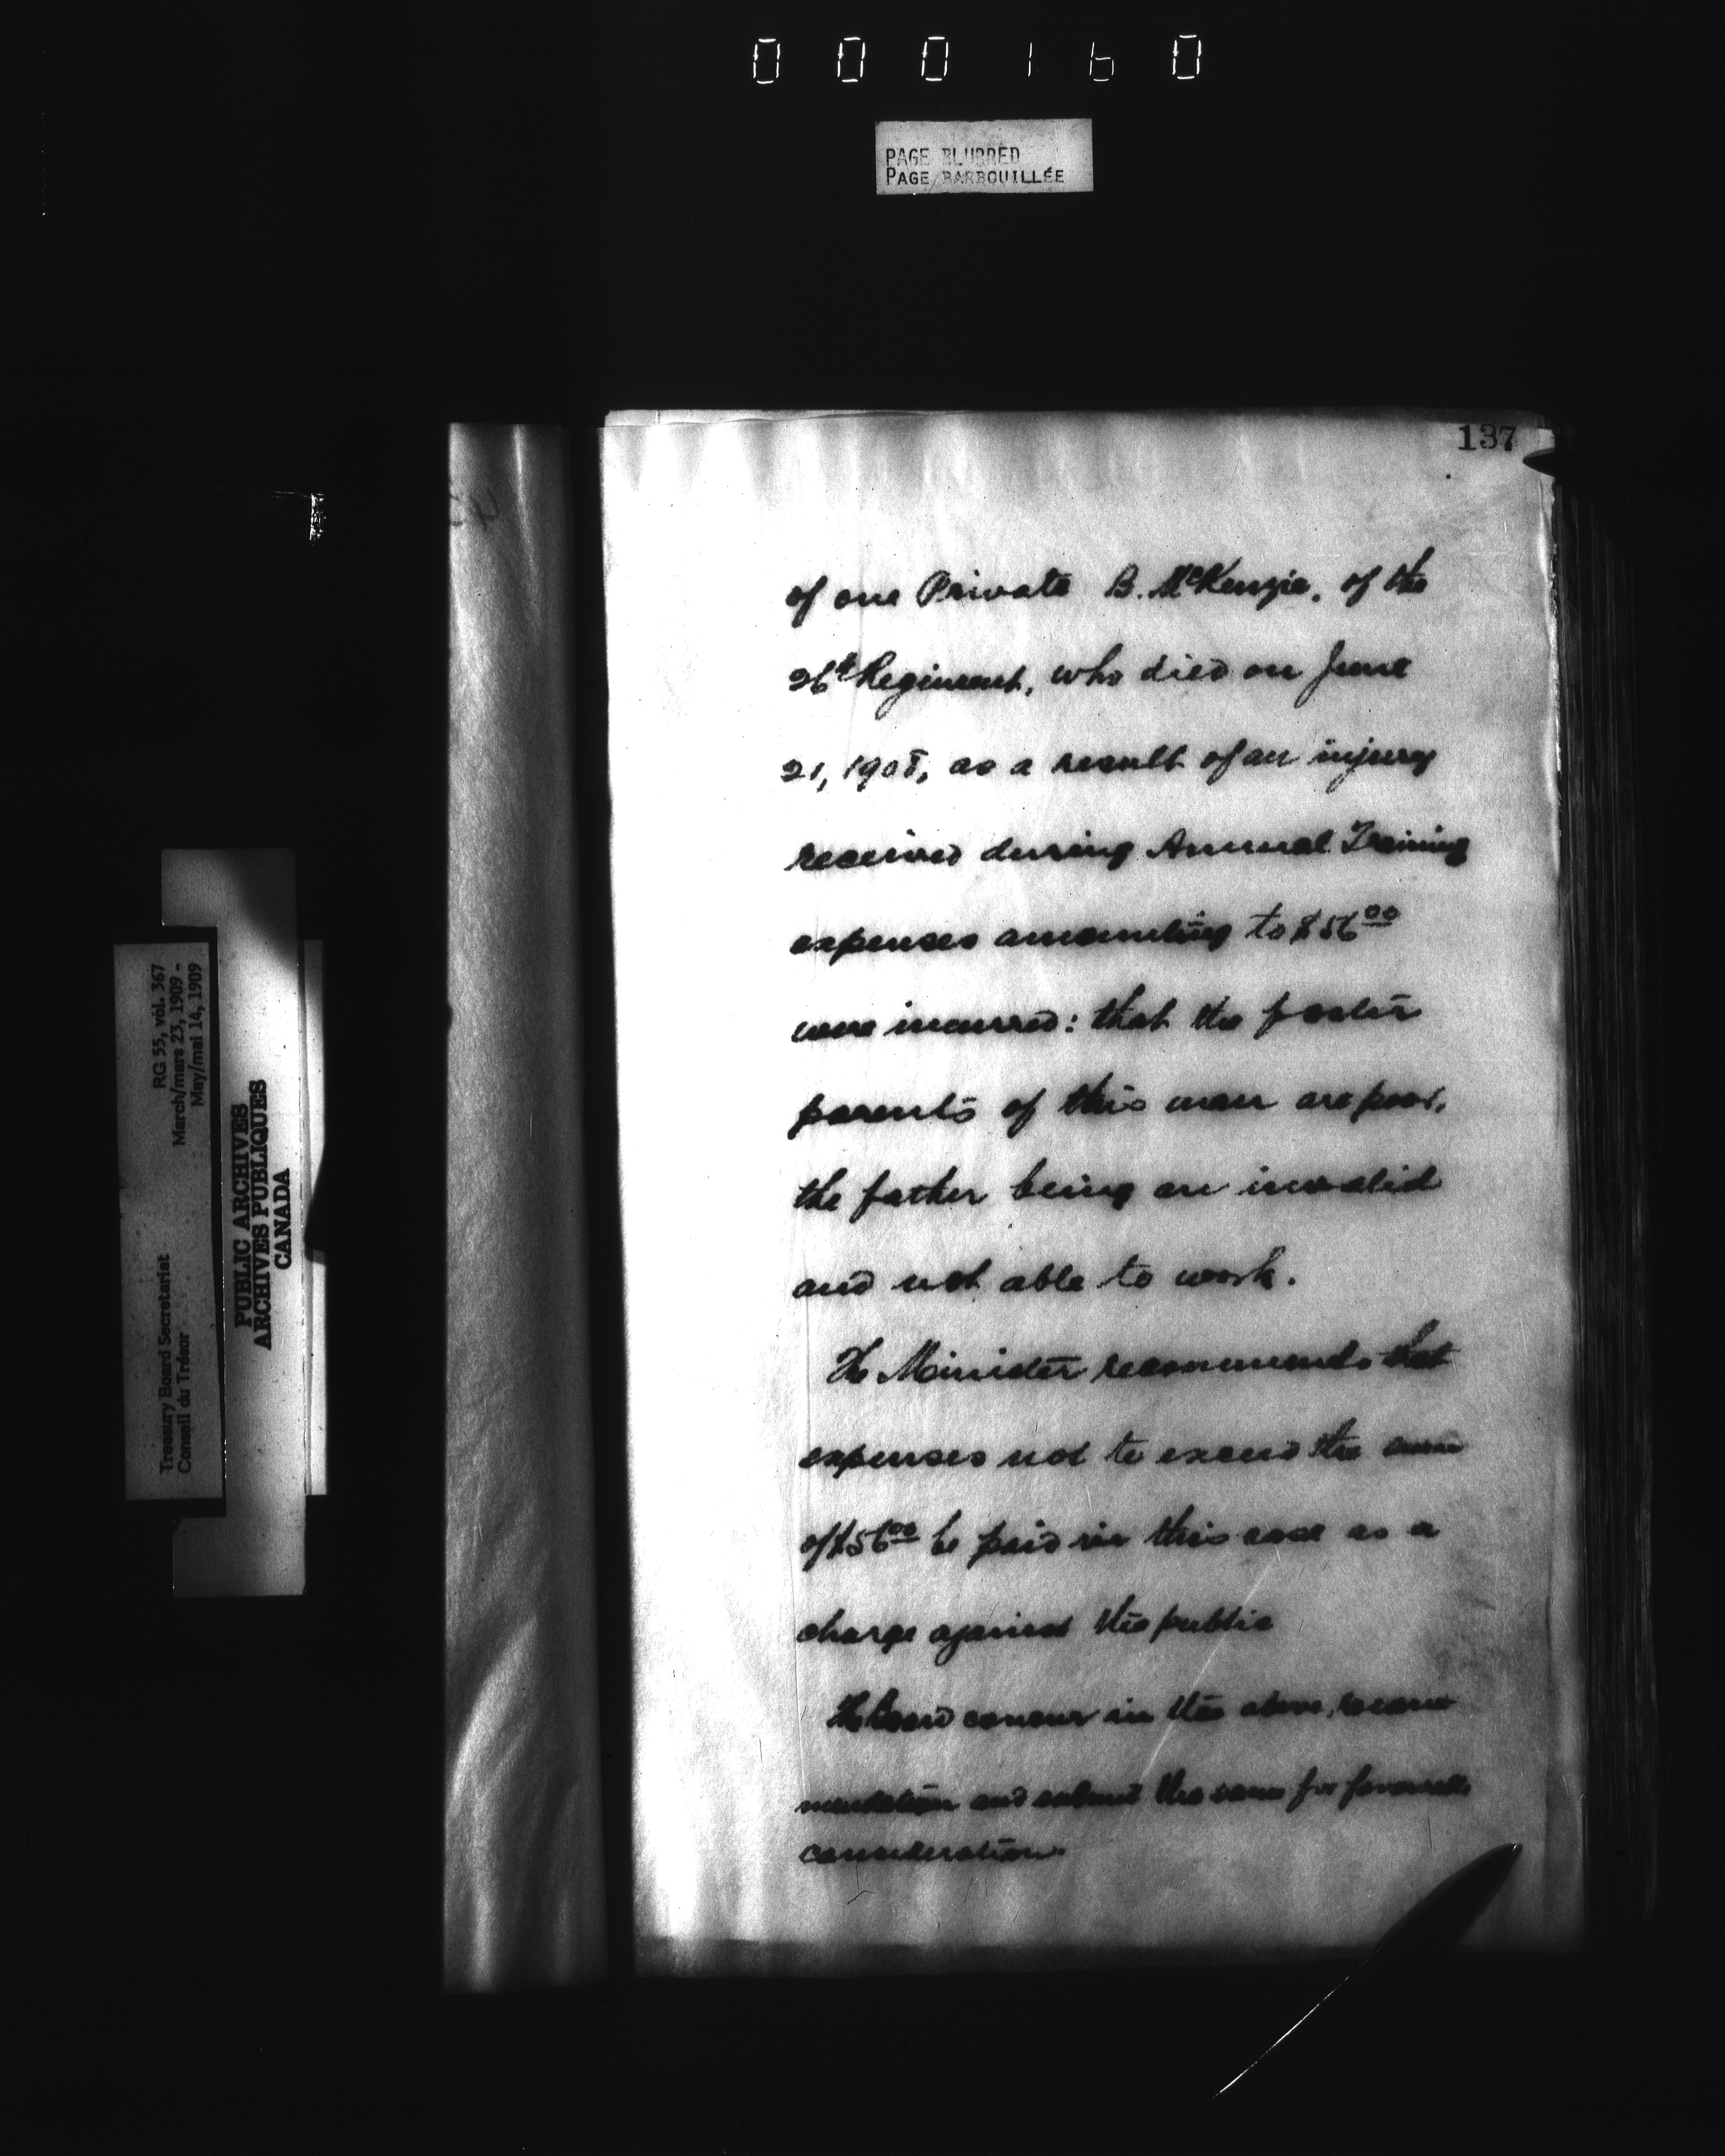 000160
PAGE BLURRED
PAGE BARBOUILLÉE
137
of one Private B. McKenzie, of the
26th Regiment, who died on June
21, 1908, as a result of an injury
received during Annual Training
expenses amounting to $56 00
were incurred: that the foster
parents of this man are poor,
the father being an invalid
and not able to work.
The Minister recommends that
expenses not to exceed the sum
of $56 00 be paid in this case as a
charge against the public
The board concur in the above recom
mendation and submit the same for favourable
consideration.
RG 55, vol. 367
March/mars 23, 1909 -
May/mai 14, 1909
Treasury Board Secretariat
Conseil du Trésor
PUBLIC ARCHIVES
ARCHIVES PUBLIQUES
CANADA